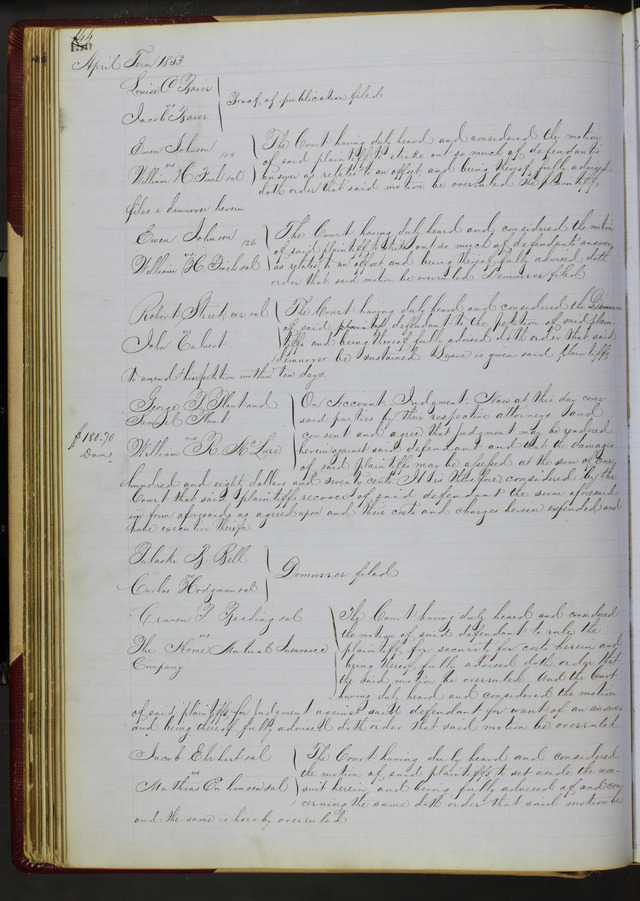 144
April Term 1853
Louise C Baier
vs
Jacob Baier
Proof of publication filed
Owen Johnson
vs
William H et al
The Court having duly heard and considered the motion
of said plaintiff to strike out so much of defendants
answer as relates to an offset and being thereof fully advised
doth order that said motion be overruled The plaintiff
files a demurrer herein
Owen Johnson 126
vs
William H et al
The Court having duly heard and considered the motion
of said plaintiff to strike out so much of defendants answer
as relates to an offset and being thereof fully advised doth
order that said motion be overruled Demurrer filed
Robert Street, et al
vs
John Talbert
The Court having duly heard and considered the Demurrer
of said defendant to the petition of said plain
tiffs and being thereof fully advised doth order that said
demurrer be sustained Leave is given said plaintiffs
to amend their petition within ten days
George P Plant and
Samuel Plant
vs
William R McLure
$180.70
Dams
On Account. Judgment. Now at this day come
said parties by their respective attorneys and
consent and agree that judgment may be rendered
herein against said defendant and that the damages
of said plaintiffs may be assessed at the sum of one
hundred and eighty dollars and seventy cents. It is therefore considered by the
Court that said plaintiffs recover of said defendant the sum aforesaid
in form aforesaid as agreed upon and their costs and charges herein expended and
have execution therefor
Pulaski B Bell
vs
Carlos Hodgman et al
Demurrer filed
Craven P et al
vs
The Home Mutual Insurance
Company
The Court having duly heard and considered
the motion of said defendant to rule the
plaintiffs for security for costs herein and
being thereof fully advised doth order that
the said motion be overruled And the Court
having duly heard and considered the motion
of said plaintiffs for judgment against said defendant for want of an answer
and being thereof fully advised doth order that said motion be overruled
Jacob et al
vs
Mathias et al
The Court having duly heard and considered
the motion of said plaintiffs to set aside the non
suit herein, and being fully advised of and con
cerning the same doth order that said motion be
and the same is hereby overruled